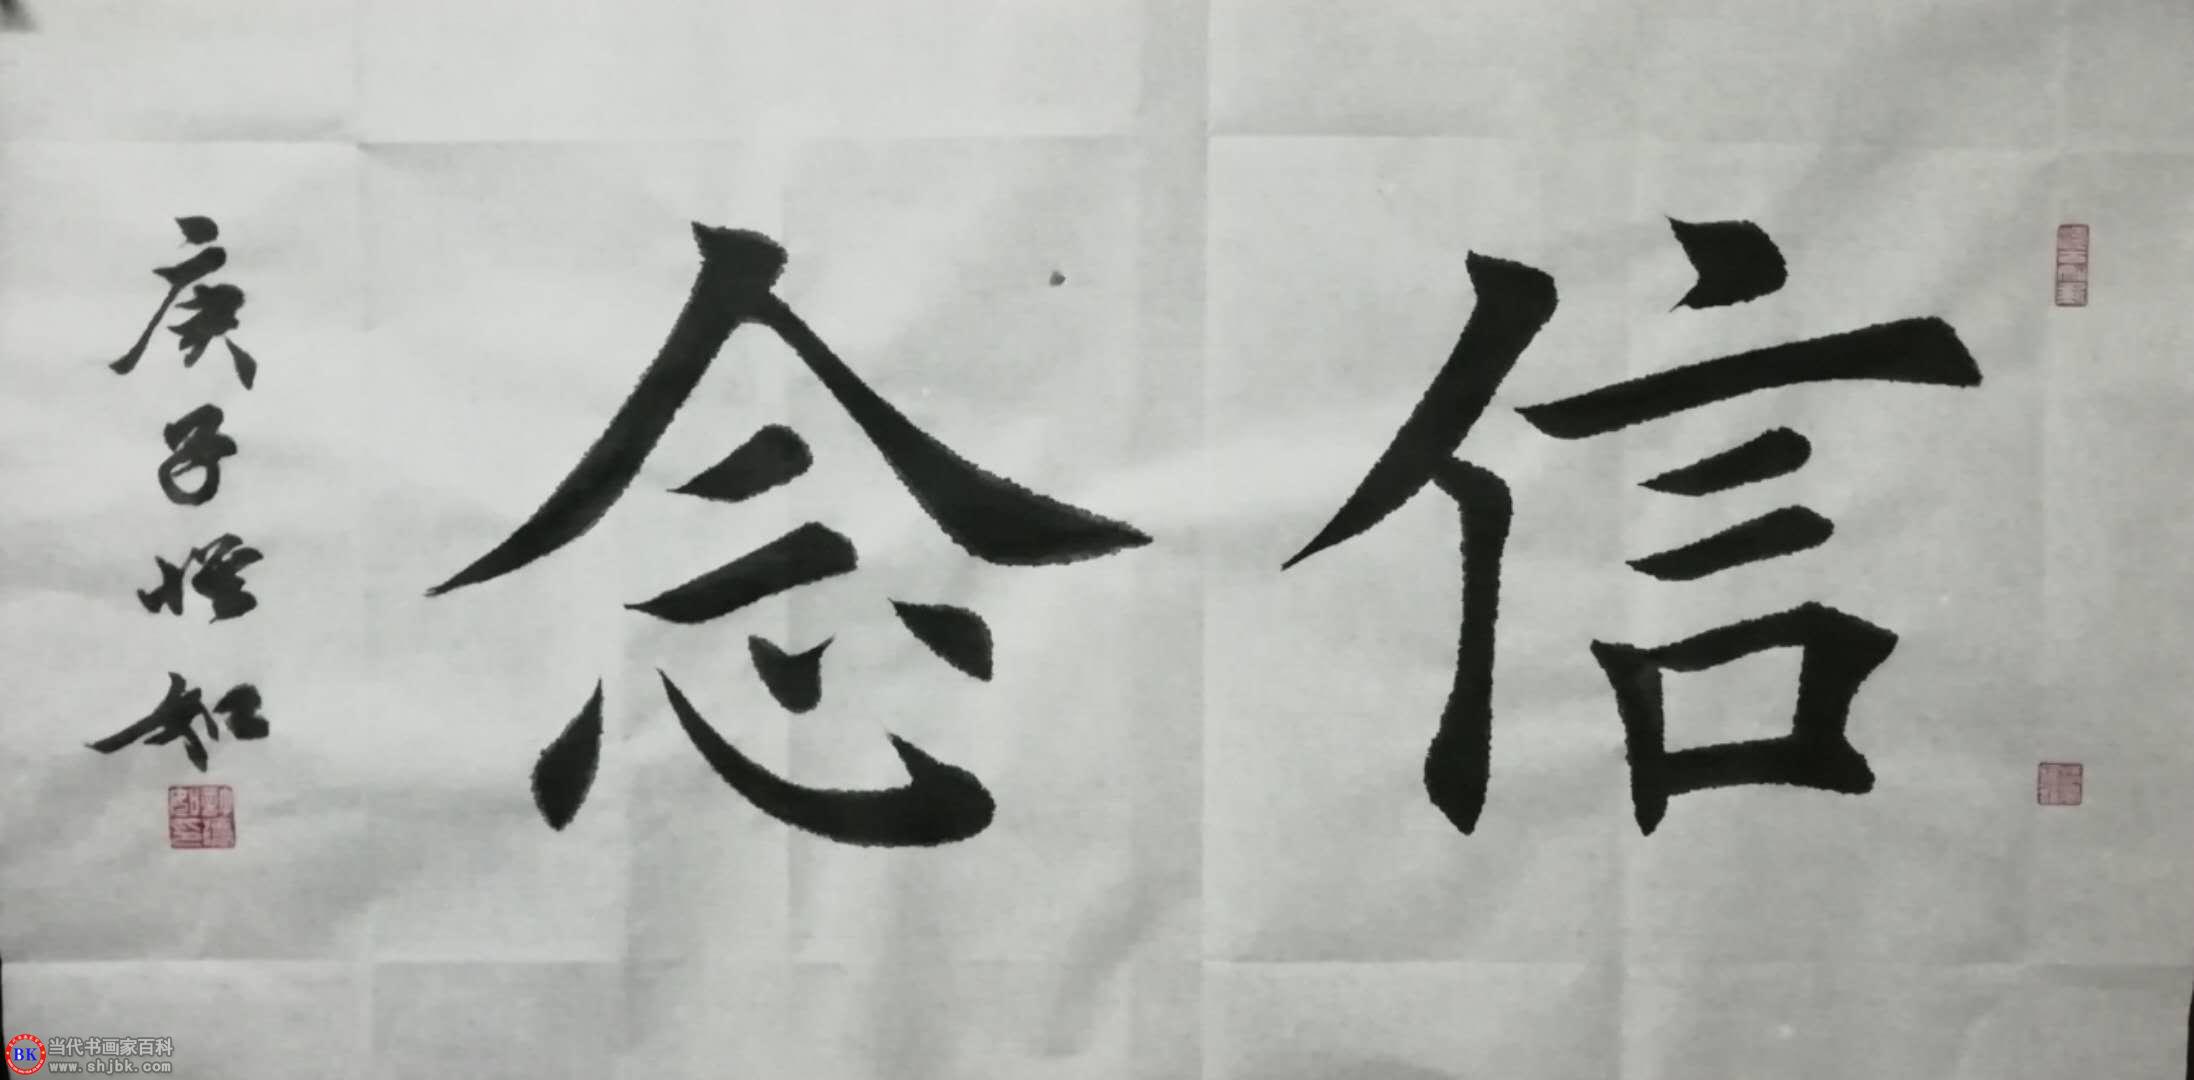 信念
庚子
BK 当代书画家百科
www.shjbk.com